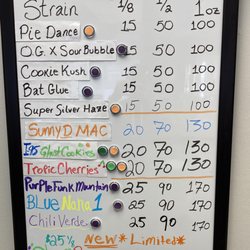 Strain 1/8 1/2 1oz
Pie Dance 15 50 100
O.G. X Sour Bubble 15 50 100
Cookie Kush 15 50 100
Bat Glue 15 50 100
Super Silver Haze 15 50 100
SUMYD MAC 20 70 130
I95 Ghost Cookies 20 70 130
Tropic Cherries 20 70 130
Purple Funk Mountain 25 90 170
BLUE NANA 1 25 90 170
Chili Verde 25 90 170
NEW * Limited *